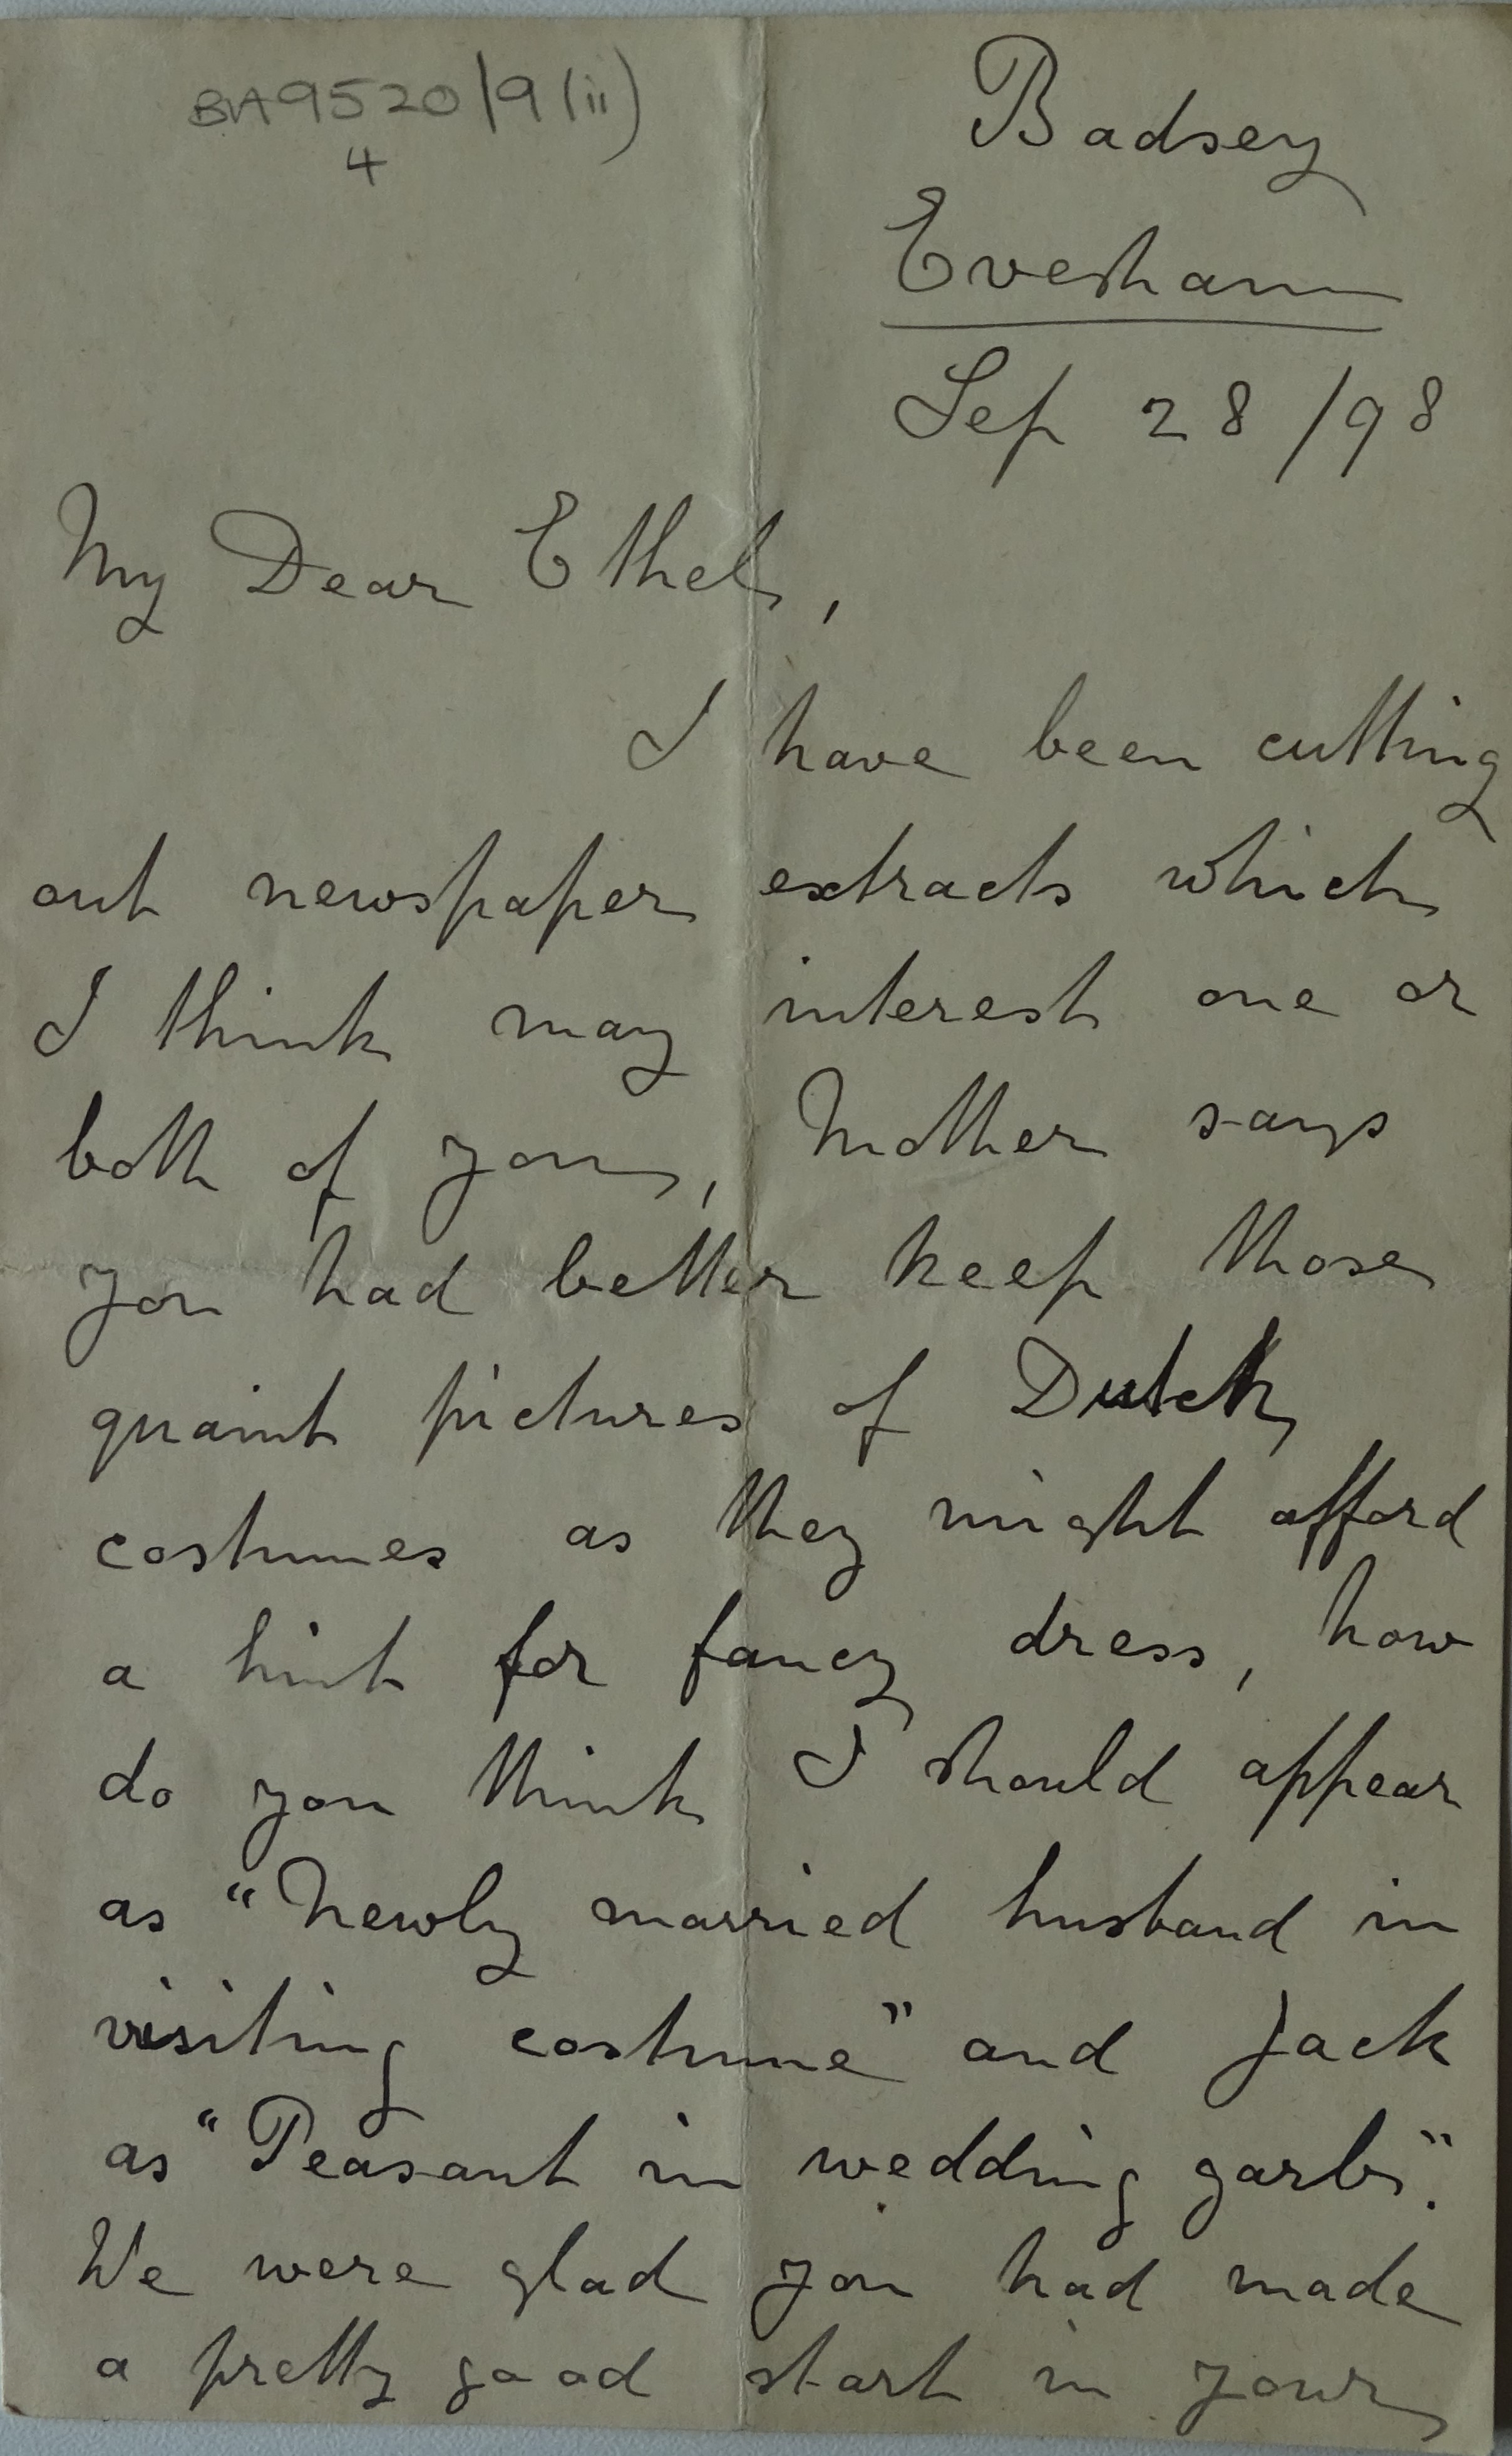 BA9520/9(ii)
4
Badsey
Evesham
Sep 28/98
My Dear Ethel,
I have been cutting
out newspaper extracts which
I think may interest one or
both of you, Mother says
you had better keep those
quaint pictures of Dutch
costumes as they might afford
a hint for fancy dress, how
do you think I should appear
as "Newly married husband in
visiting costume" and Jack
as "Peasant in wedding garb".
We were glad you had made
a pretty good start in your